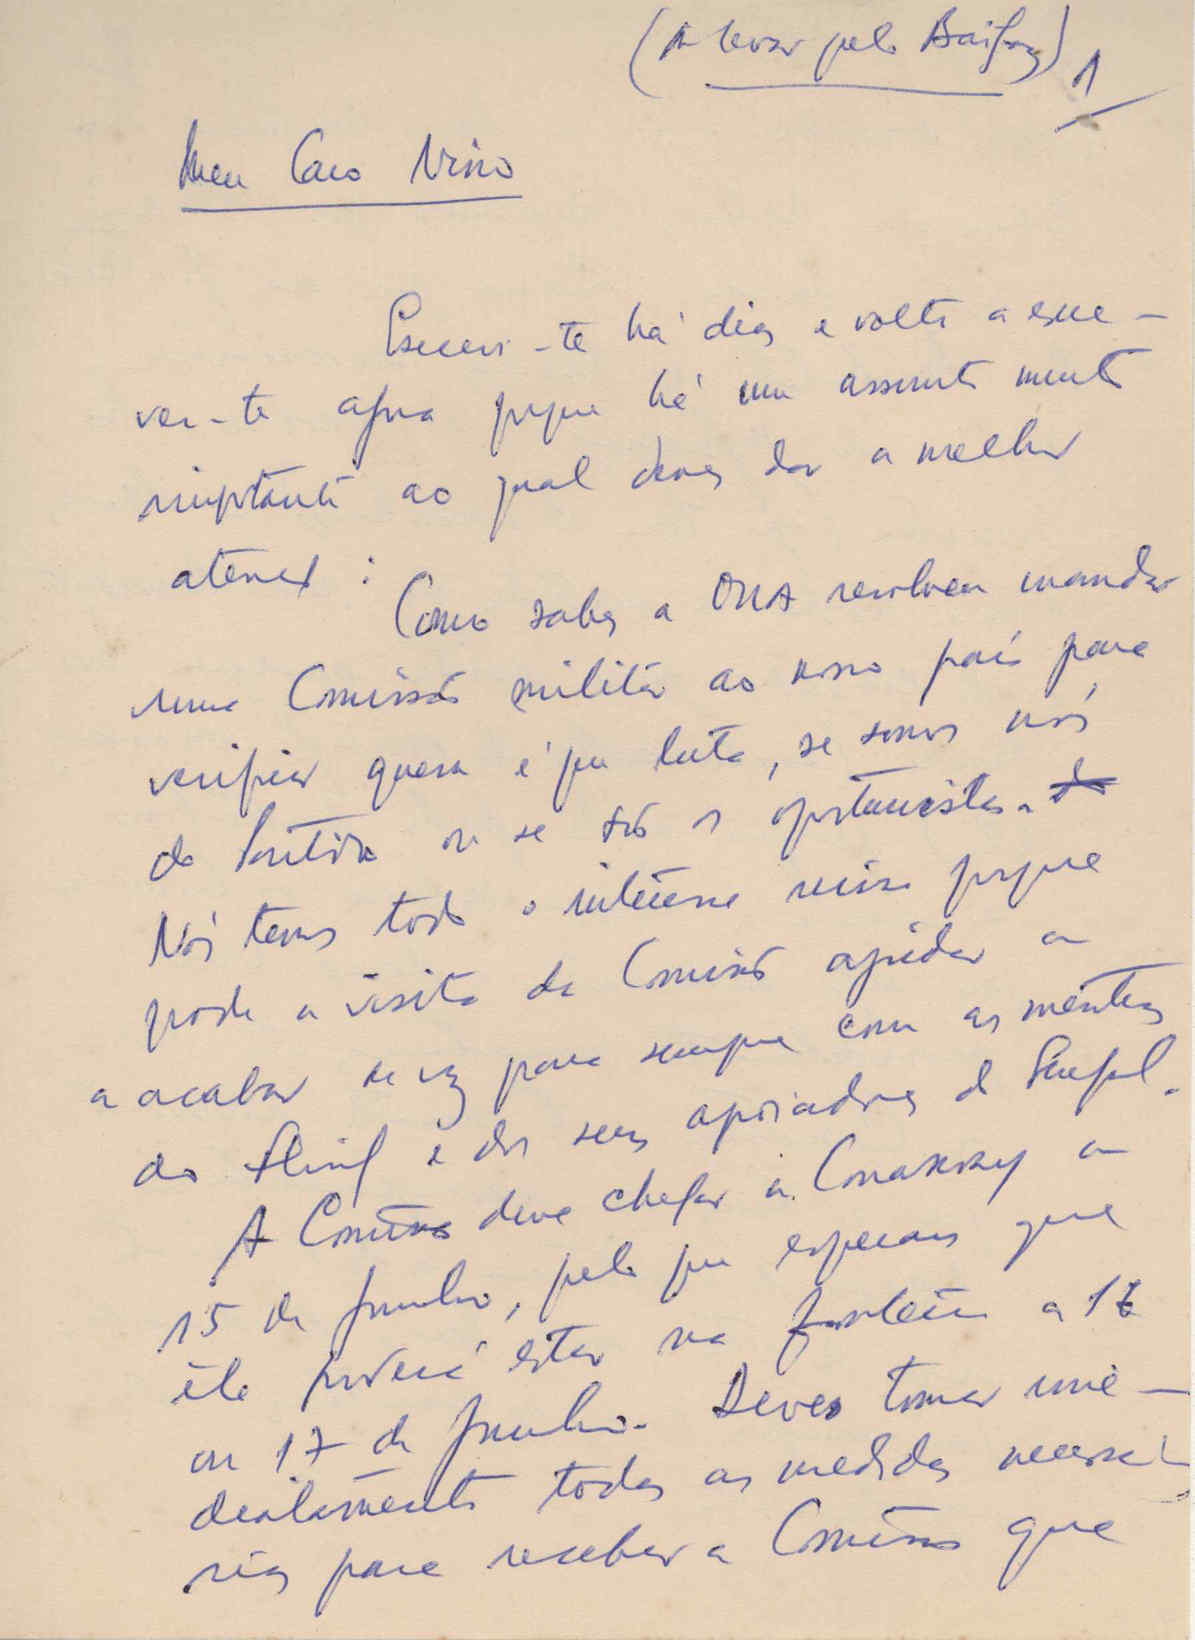 (A levar pelo Baifaz)
1
Meu Caro Nino
Escrevi-te há dias e volto a escre-
ver-te agora porque há um assunto muito
importante ao qual deves dar a melhor
atenção :
Como sabes a OUA resolveu mandar
uma Comissão militar ao nosso país para
verificar quem é que luta, se somos nós
do Partido ou se são os oportunistas.
Nós temos todo o interesse nisso porque
pode a visita da Comissão ajudar a
a acabar de vez para sempre com as mentiras
do Fling e dos seus apoiadores do Senegal.
A Comissão deve chegar a Conakry a
15 de Junho, pelo que esperamos que
ela poderá estar na fronteira a 16
ou 17 de Junho. Deves tomar ime-
diatamente todas as medidas necessá-
rias para receber a Comissão que